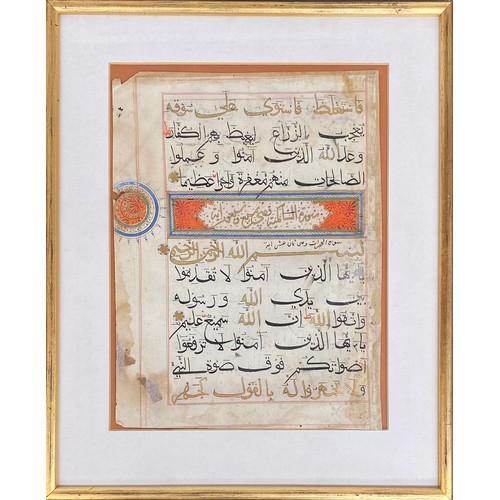 فاستغلظ فاستوى على سوقه
يعجب الزراع ليغيظ بهم الكفار
وعد الله الذين امنوا و عملوا
الصالحات منهم مغفرة واجرا عظيما
سورة
سورة الحجرات وهي ثمان عشر اية
بسم الله الرحمن الرحيم
يايها الذين امنوا لا تقدموا
بين يدي الله و رسوله
واتقوا الله ان الله سميع عليم
يايها الذين امنوا لا ترفعوا
اصواتكم فوق صوت النبي
ولا تجهروا له بالقول كجهر